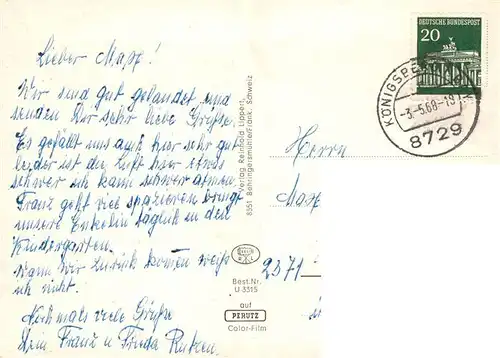 Lieber Max!
Wir sind gut gelandet und
senden Dir sehr liebe Grüße.
Es gefällt uns auch hier sehr gut
leider ist die Luft hier etwas
schwer ich kann schwer atmen.
Franz geht viel spazieren bringt
unsere Enkelin täglich in den
Kindergarten.
Wann wir zurück kommen weiß
ich nicht.
Nochmals viele Grüße
Dein Franz u Frieda
Verlag Reinhold Lippert,
8551 Behringersmühle/Fränk. Schweiz
Best.Nr.
U 3315
auf
PERUTZ
Color-Film
DEUTSCHE BUNDESPOST
20
8729
Herrn
Max
2371